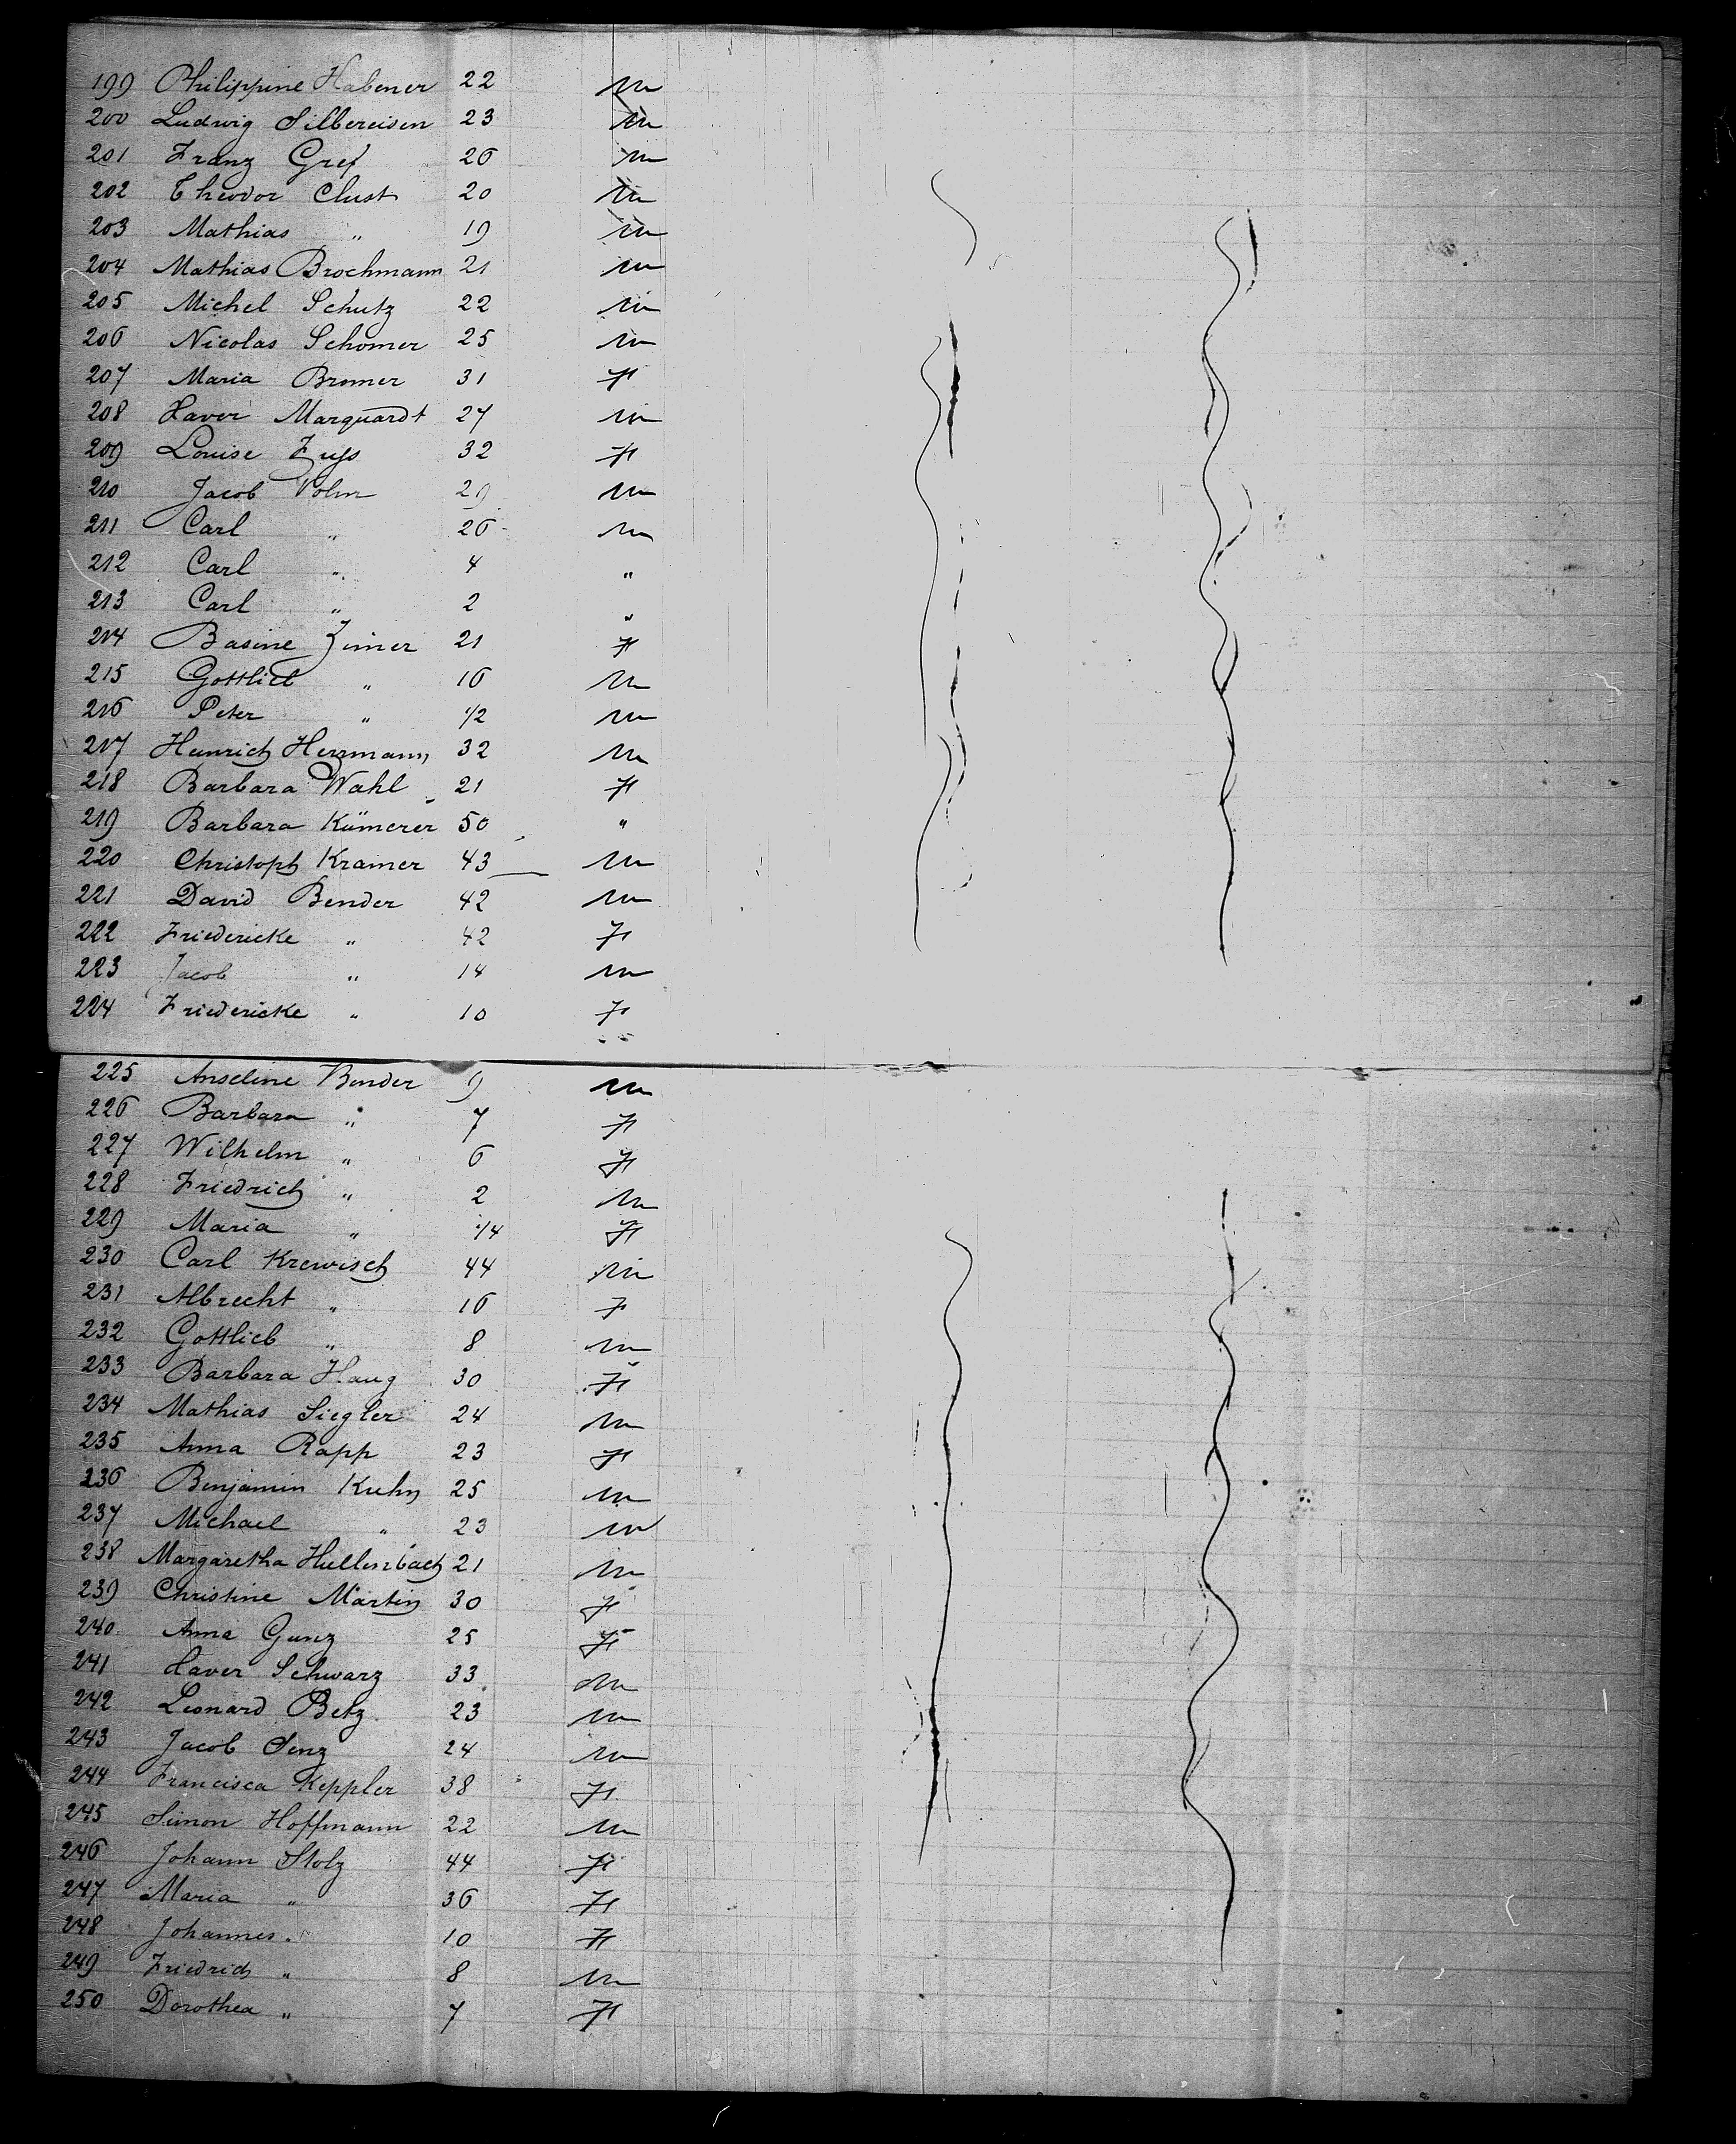 199 Philippine Habener 22 m
200 Ludwig Silbereisen 23 m
201 Franz Gref 26 m
202 Theodor Clust 20 m
203 Mathias " 19 m
204 Mathias Brochmann 21 m
205 Michel Schutz 22 m
206 Nicolas Schomer 25 m
207 Maria Bromer 31 f
208 Xaver Marquardt 27 m
209 Louise Fuss 32 f
210 Jacob Vohn 29 m
211 Carl " 26 m
212 Carl " 4 "
213 Carl " 2 "
214 Basine Zimer 21 f
215 Gottlieb " 16 m
216 Peter " 1/2 m
217 Heinrich Herrmann 32 m
218 Barbara Wahl 21 f
219 Barbara Kümerer 50 "
220 Christoph Kramer 43 m
221 David Bender 42 m
222 Friedericke " 42 f
223 Jacob " 14 m
224 Friedericke " 10 f
225 Anseline Bender 9 m
226 Barbara " 7 f
227 Wilhelm " 6 f
228 Friedrich " 2 m
229 Maria " 1/4 f
230 Carl Krewisch 44 m
231 Albrecht " 16 f
232 Gottlieb " 8 m
233 Barbara Haug 30 f
234 Mathias Siegler 24 m
235 Anna Rapp 23 f
236 Benjamin Kuhn 25 m
237 Michael " 23 m
238 Margaretha Hullenbach 21 m
239 Christine Martin 30 f
240 Anna Gunz 25 f
241 Xaver Schwarz 33 m
242 Leonard Betz 23 m
243 Jacob Senz 24 m
244 Francisca Keppler 38 f
245 Simon Hoffmann 22 m
246 Johann Stolz 44 f
247 Maria " 36 f
248 Johannes " 10 f
249 Friedrich " 8 m
250 Dorothea " 7 f